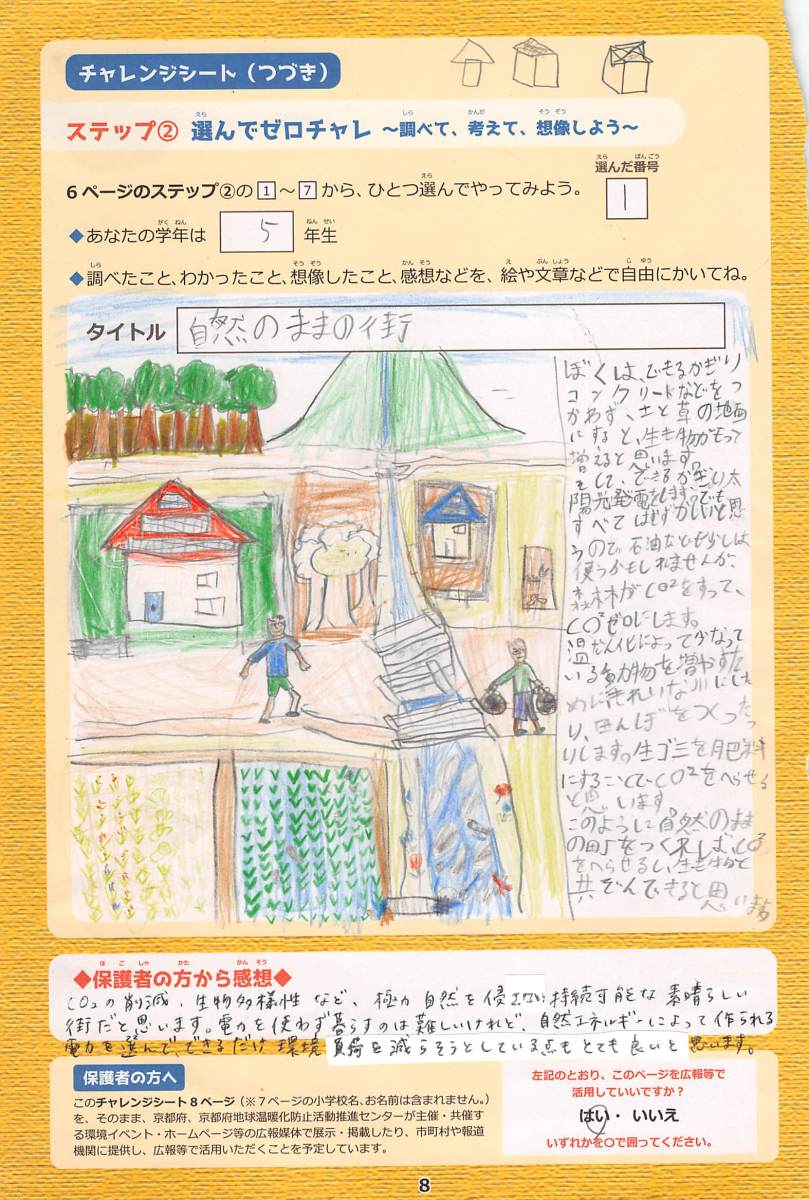 チャレンジシート（つづき）
ステップ② 選んでゼロチャレ ～調べて、考えて、想像しよう～
6ページのステップ②の1～7から、ひとつ選んでやってみよう。
選んだ番号
1
◆あなたの学年は 5 年生
◆調べたこと、わかったこと、想像したこと、感想などを、絵や文章などで自由にかいてね。
タイトル 自然のままの街
ぼくは、できるかぎり
コンクリートなどをつ
かわず、土と草の地面
にすると、生き物がもって
増えると思います。
そして、できるかぎり太
陽光発電をします。でも
すべてはむずかしいと思
うので、石油なども少しは
使うかもしれませんが、
森林がCO²をすって、
CO²ゼロにします。
温だん化によって少なって
いる動物を増やすた
めにきれいな川にした
り、田んぼをつくった
りします。生ゴミを肥料
にすることでCO²をへらせる
と思います。
このように自然のまま
の町をつくれば、CO²
をへらせるし、生き物と
共ぞんできると思います
◆保護者の方から感想◆
CO₂の削減、生物多様性など、極力自然を侵さない持続可能な素晴らしい
街だと思います。電力を使わず暮らすのは難しいけれど、自然エネルギーによって作られる
電力を選んで、できるだけ環境負荷を減らそうとしている点もとても良いと思います。
保護者の方へ
このチャレンジシート8ページ（※7ページの小学校名、お名前は含まれません。）
を、そのまま、京都府、京都府地球温暖化防止活動推進センターが主催・共催す
る環境イベント・ホームページ等の広報媒体で展示・掲載したり、市町村や報道
機関に提供し、広報等で活用いただくことを予定しています。
左記のとおり、このページを広報等で
活用していいですか？
はい・いいえ
いずれかを○で囲ってください。
8